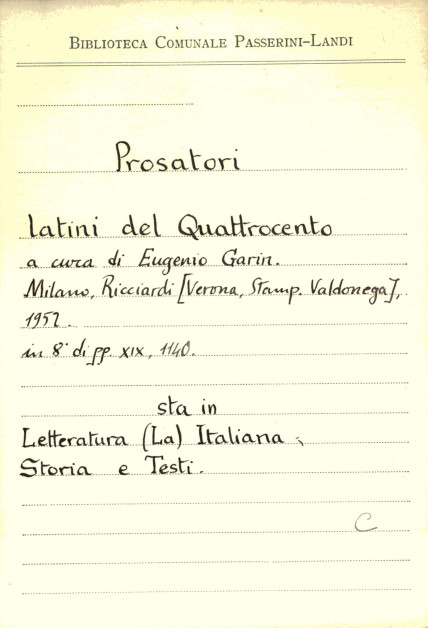 BIBLIOTECA COMUNALE PASSERINI-LANDI
Prosatori
latini del Quattrocento
a cura di Eugenio Garin.
Milano, Ricciardi [Verona, Stamp. Valdonega],
1952.
in 8° di pp. XIX, 1140.
sta in
Letteratura (La) Italiana.
Storia e Testi.
C